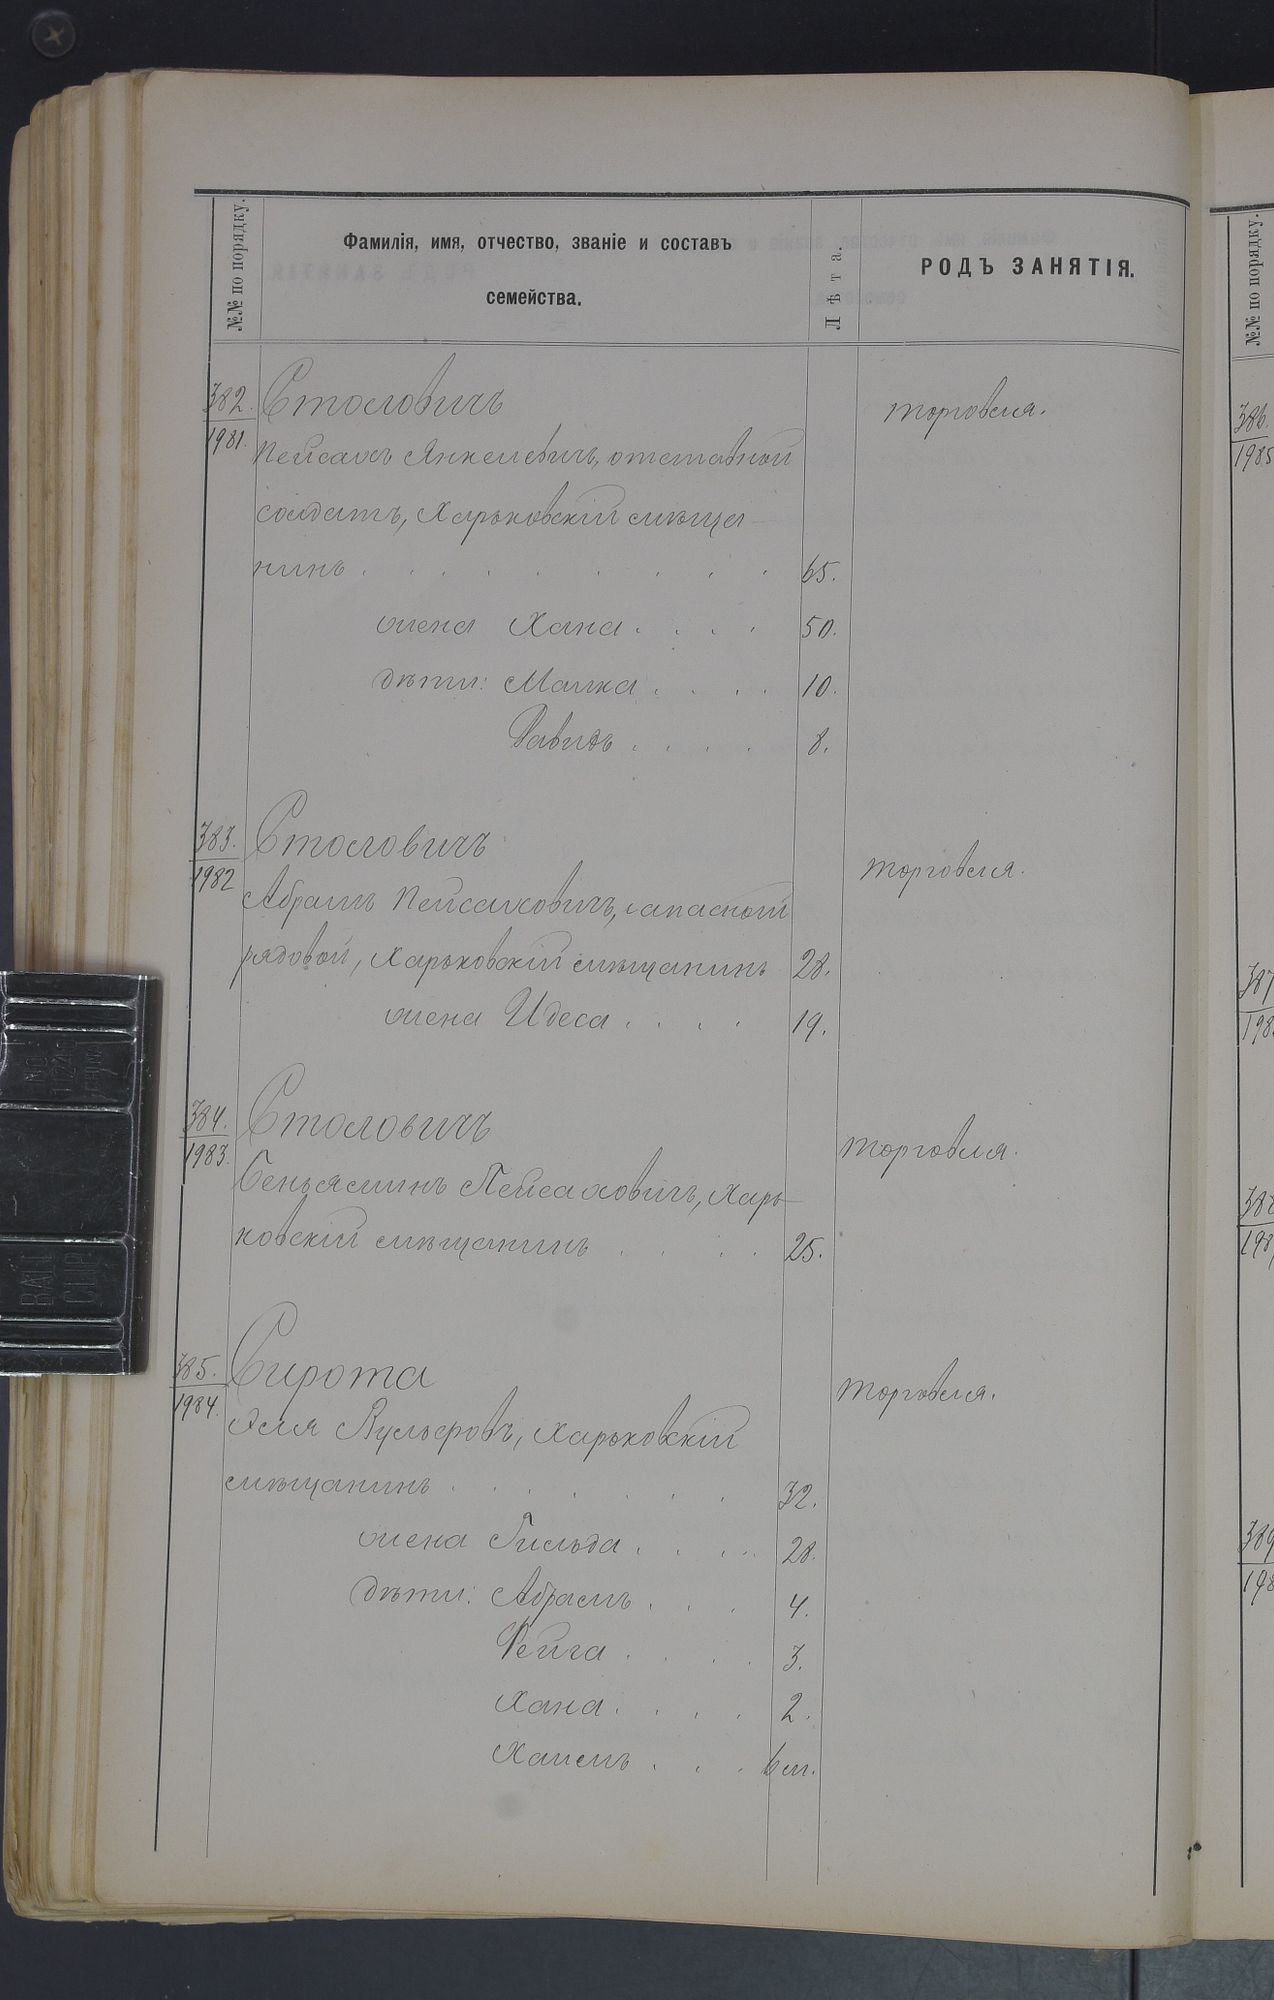 №№ по порядку.
Фамилія, имя, отчество, званіе и составъ
семейства.
Лѣта.
РОДЪ ЗАНЯТІЯ.
382.
1981.
Столовичъ
торговля.
Пейсахъ Янкелевичъ, отставной
солдатъ, Харьковскій мѣща-
нинъ . . . . . . . . . 65.
жена Хана . . . . 50.
дѣти: Малка . . . . 10.
Давидъ . . . . 8.
383.
1982
Столовичъ
торговля.
Абрамъ Пейсаховичъ, запасной
рядовой, Харьковскій мѣщанинъ 28.
жена Идеса . . . . 19.
384.
1983.
Столовичъ
торговля.
Беньяминъ Пейсаховичъ, Харь-
ковскій мѣщанинъ . . . . 25.
385.
1984.
Сирота
торговля.
Эля Вульфовъ, Харьковскій
мѣщанинъ . . . . . . . 32.
жена Гильда . . . . 28.
дѣти: Абрамъ . . . 4.
Фейга . . . . 3.
Хана . . . . 2.
Хаимъ . . . 6 м.
№№ по порядку.
386.
1985
387
198
388
198
389
198
NO
1/24
BALL
CLIP